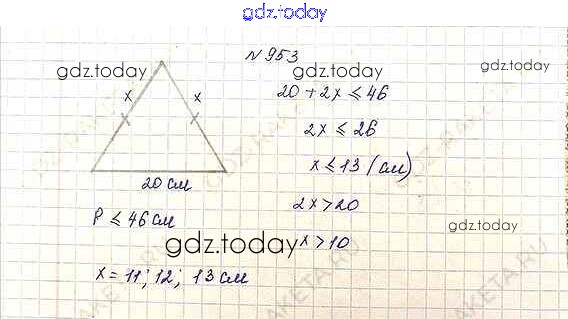 gdz.today
N 953
gdz.today
gdz.today
gdz.today
x
x
20 + 2x ≤ 46
2x ≤ 26
x ≤ 13 (см)
20 см
2x > 20
P ≤ 46 см
gdz.today
gdz.today
x > 10
x = 11; 12; 13 см